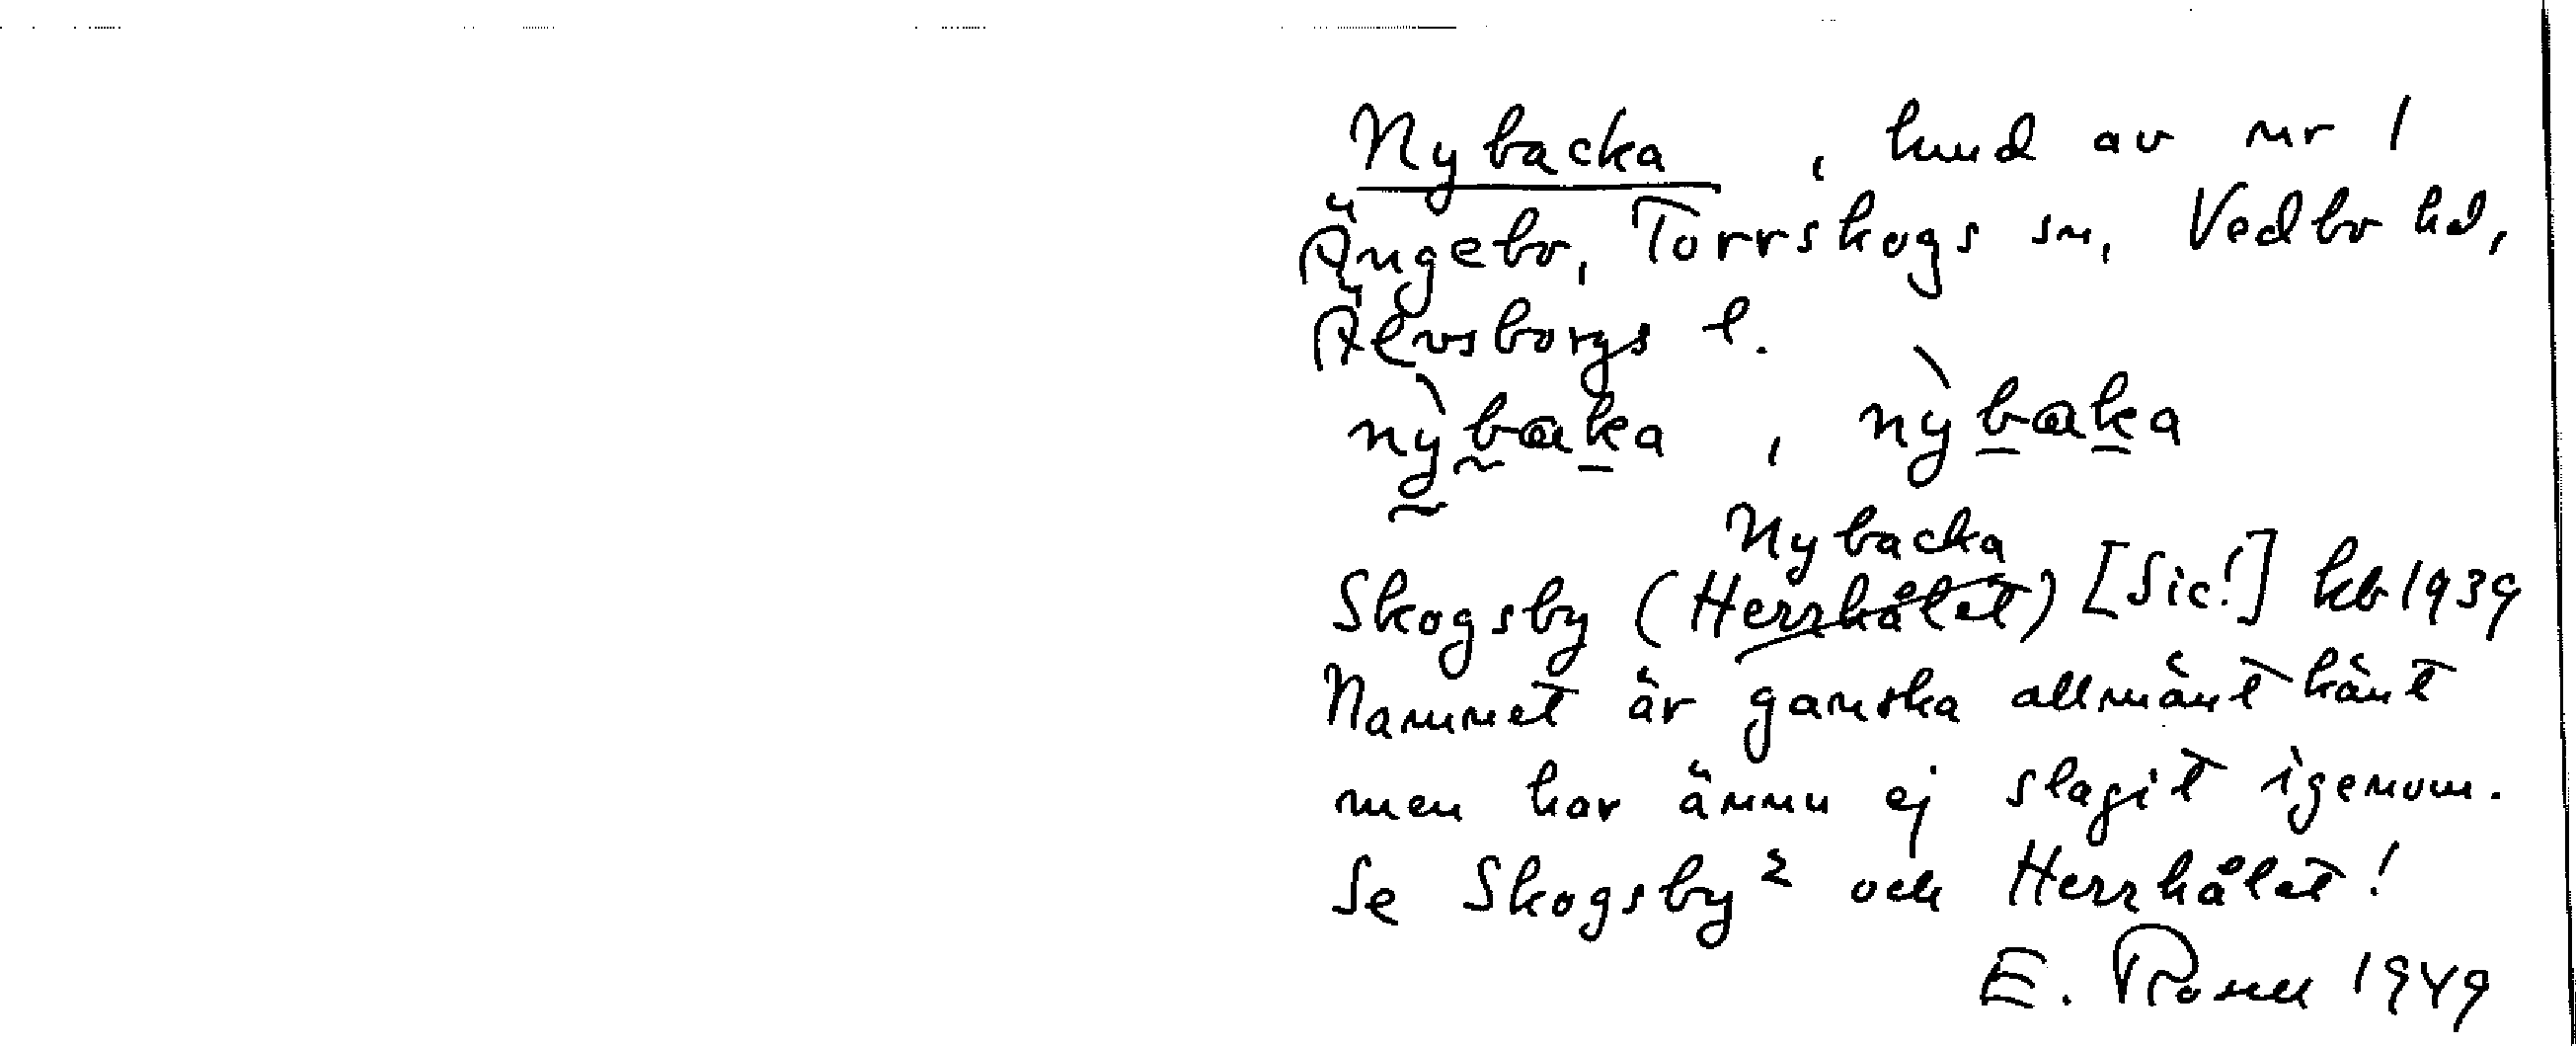 Nybacka, hmd av nr 1
Ängebo, Torrskogs sn, Vedbo hd,
Älvsborgs l.
nỳbaka, nỳbaka
Nybacka
Skogsby (Herrhålet) [Sic!] kb 1939
Namnet är ganska allmänt känt
men har ännu ej slagit igenom.
Se Skogsby² och Herrhålet!
E. 1949